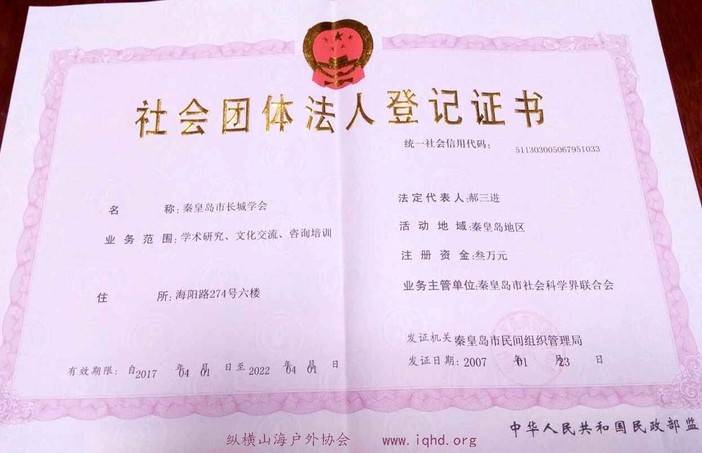 社会团体法人登记证书
统一社会信用代码： 511303005067951033
名 称：秦皇岛市长城学会
法定代表人：郝三进
业务范围：学术研究、文化交流、咨询培训
活动地域：秦皇岛地区
注册资金：叁万元
住 所：海阳路274号六楼
业务主管单位：秦皇岛市社会科学界联合会
发证机关 秦皇岛市民间组织管理局
有效期限：自2017年04月01日至2022年04月01日
发证日期：2007年01月23日
中华人民共和国民政部监
纵横山海户外协会 www.iqhd.org